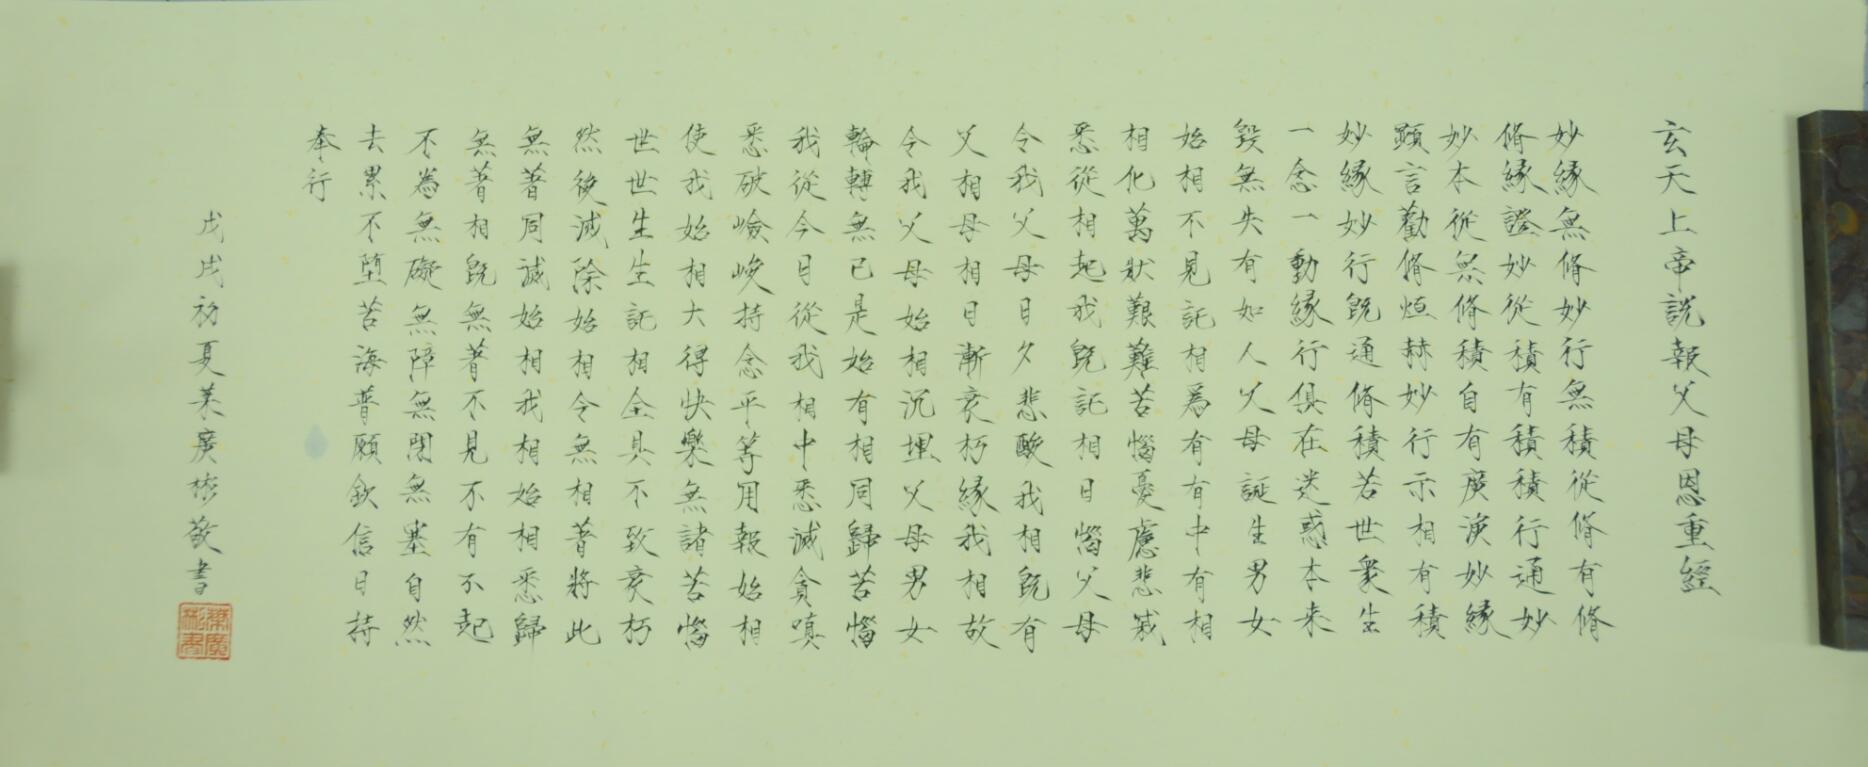 玄天上帝說報父母恩重經
妙緣無脩妙行無積從脩有脩
脩緣證妙從積有積積行通妙
妙本從無脩積自有廣演妙緣
顯言勸脩烜赫妙行示相有積
妙緣妙行既通脩積若世衆生
一念一動緣行俱在迷惑本来
毀無失有如人父母誕生男女
始相不見託相爲有有中有相
相化萬狀艱難苦惱憂慮悲戚
悉從相起我既託相日惱父母
令我父母日夕悲酸我相既有
父相母相日漸衰朽緣我相故
令我父母始相沉埋父母男女
輪轉無已是始有相同歸苦惱
我從今日從我相中悉滅貪嗔
悉破嶮峻持念平等用報始相
使我始相大得快樂無諸苦惱
世世生生託相全具不致衰朽
然後滅除始相令無相著將此
無著同滅始相我相始相悉歸
無著相既無著不見不有不起
不為無礙無障無閡無塞自然
去累不墮苦海普願欽信日持
奉行
戊戌初夏葉廣彬敬書
葉廣彬書